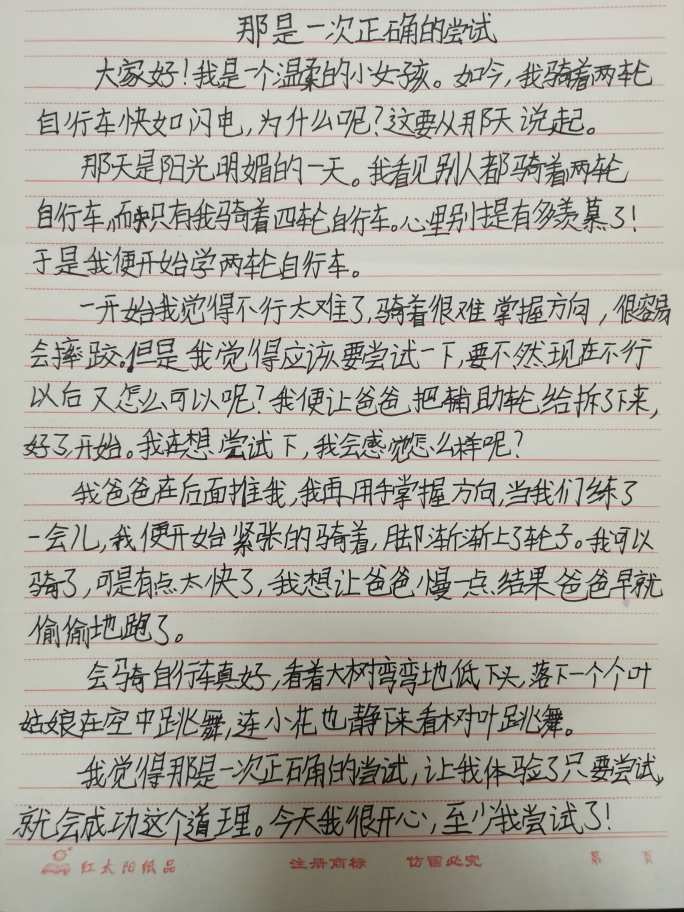 那是一次正确的尝试
大家好！我是一个温柔的小女孩。如今，我骑着两轮
自行车快如闪电，为什么呢？这要从那天说起。
那天是阳光明媚的一天。我看见别人都骑着两轮
自行车，而只有我骑着四轮自行车。心里别提有多羡慕了！
于是我便开始学两轮自行车。
一开始我觉得不行太难了，骑着很难掌握方向，很容易
会摔跤。但是我觉得应该要尝试一下，要不然现在不行
以后又怎么可以呢？我便让爸爸把辅助轮给拆了下来，
好了，开始。我在想尝试下，我会感觉怎么样呢？
我爸爸在后面推我，我再用手掌握方向，当我们练了
一会儿，我便开始紧张的骑着，脚渐渐上了轮子。我可以
骑了，可是有点太快了，我想让爸爸慢一点结果爸爸早就
偷偷地跑了。
会骑自行车真好，看着大树弯弯地低下头，落下一个个叶
姑娘在空中跳舞，连小花也静下来看树叶跳舞。
我觉得那是一次正确的尝试，让我体验了只要尝试，
就会成功这个道理。今天我很开心，至少我尝试了！
红太阳纸品 注册商标 仿冒必究 第 页